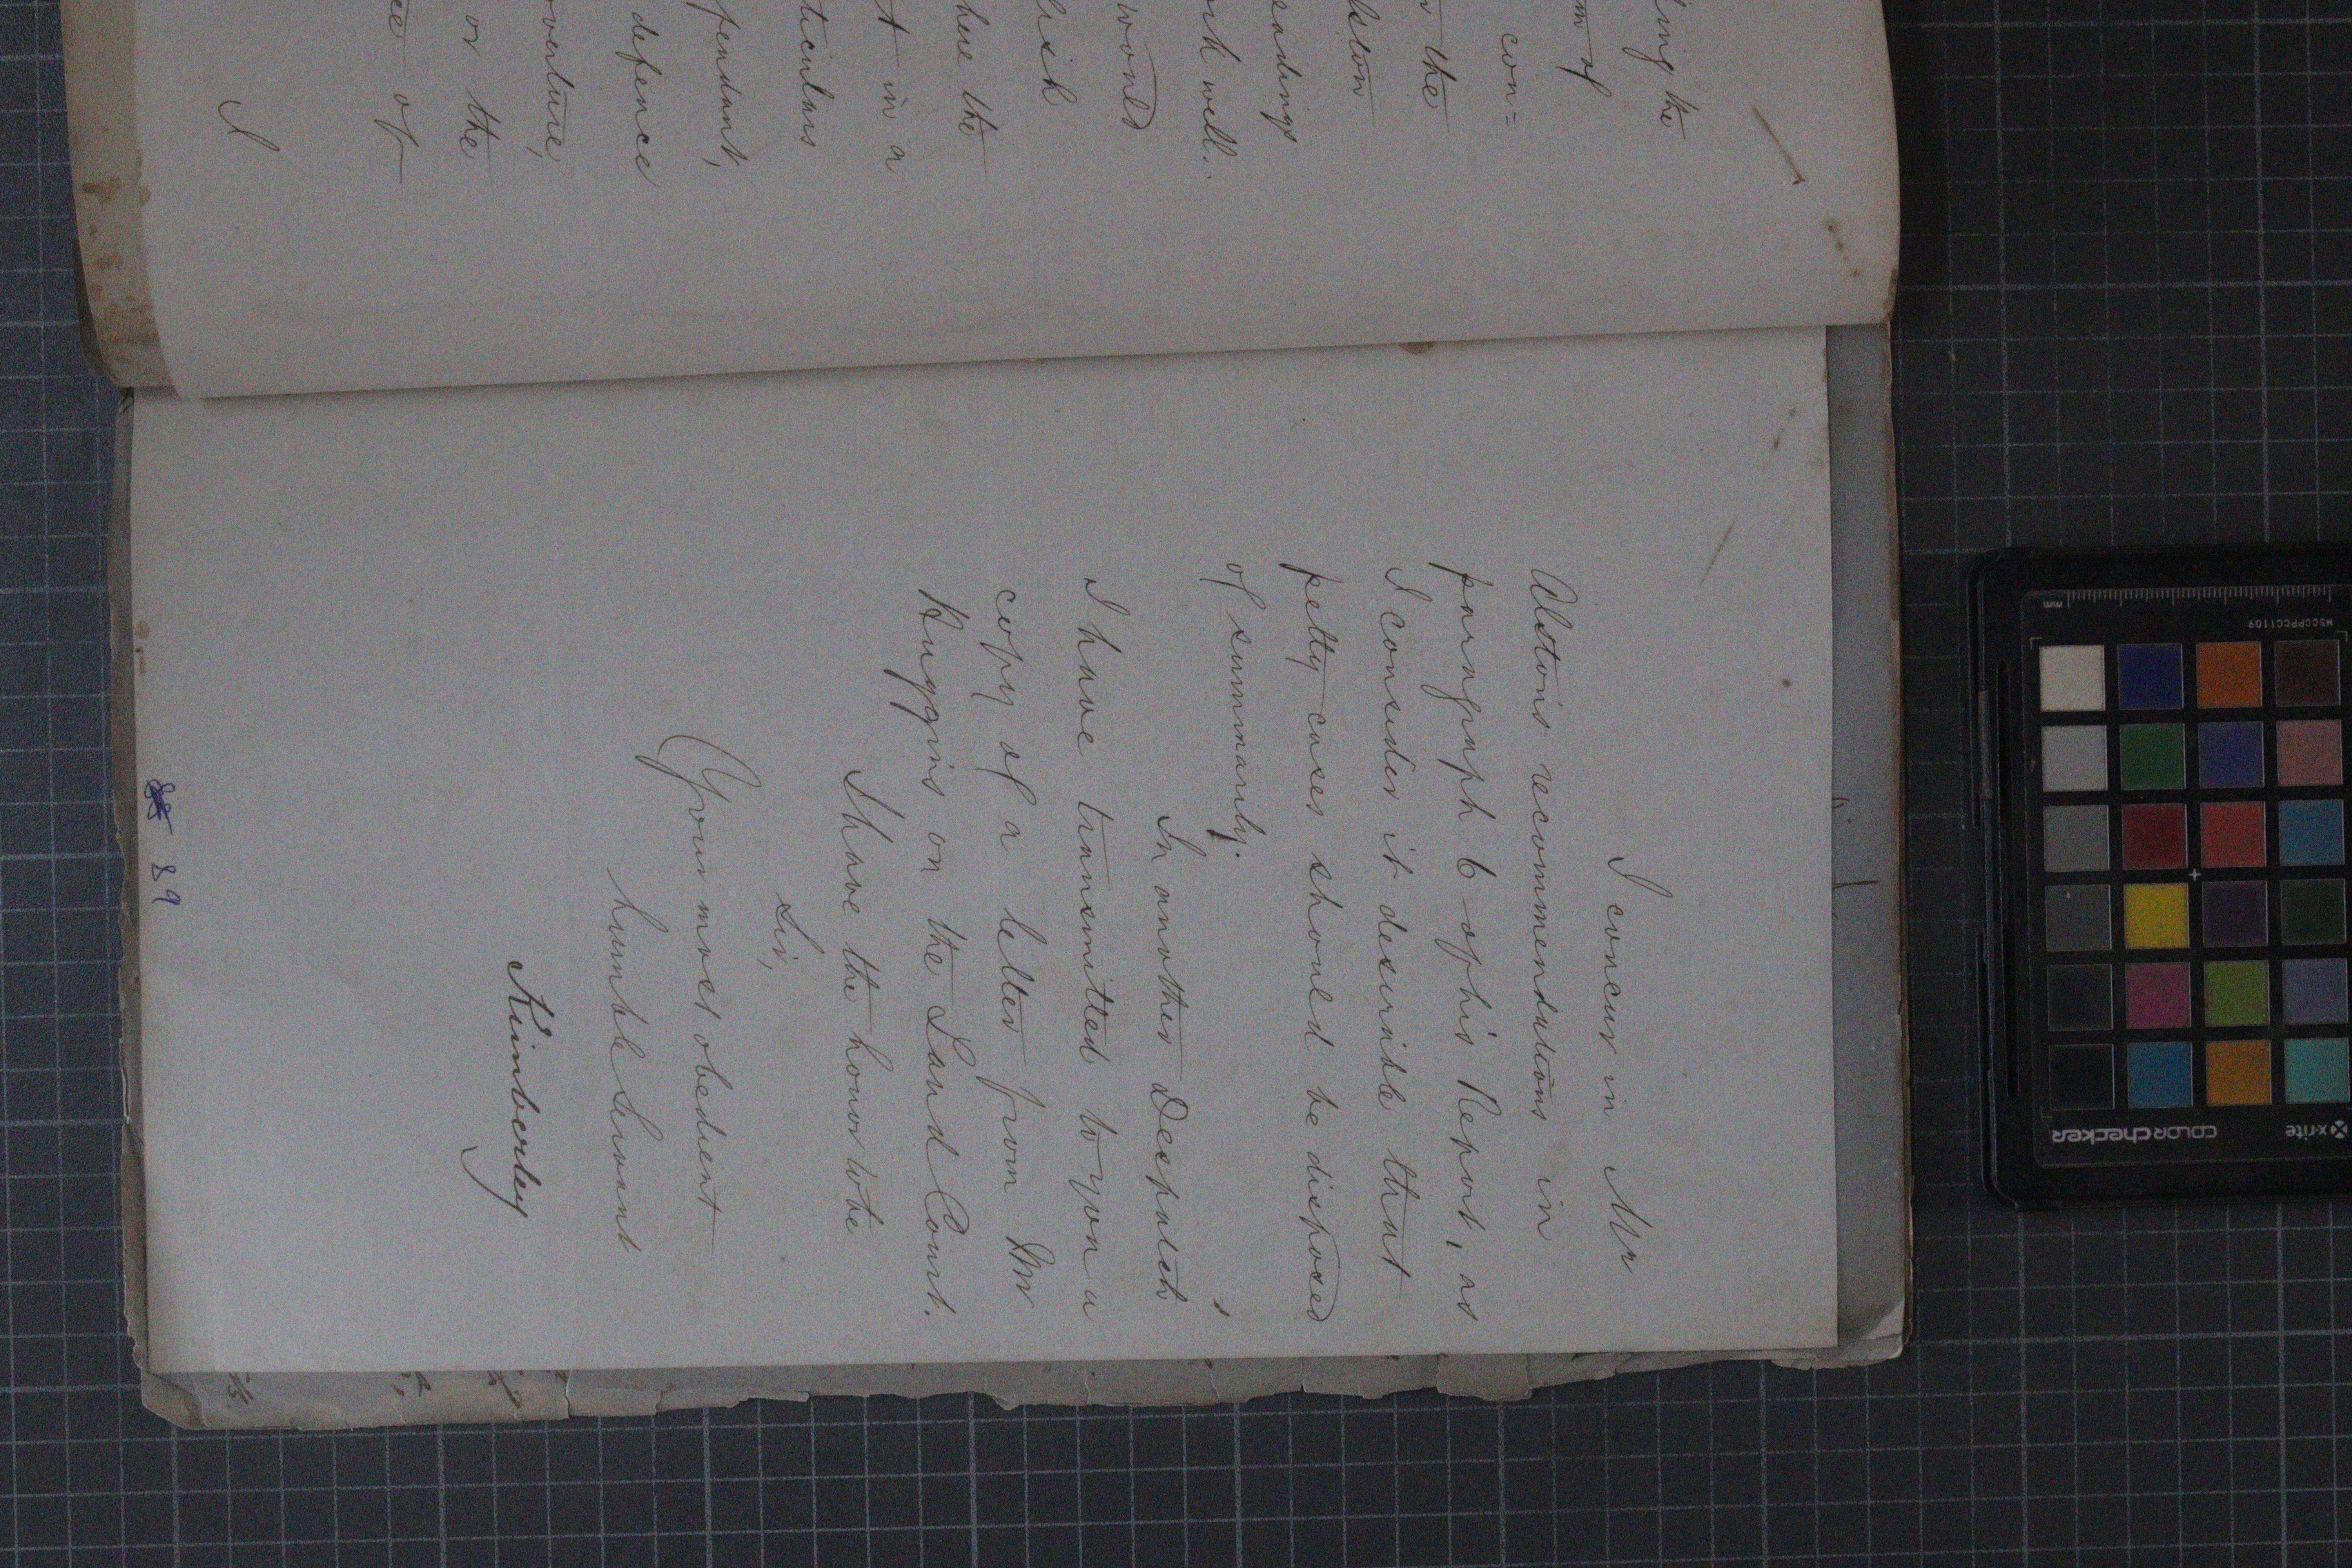 ing the
m of
con=
the
lston
eadings
ork well.
would
lish
here the
t in a
ticulars
fendant,
defence
oventure,
or the
ce of
I
I concur in Mr
Alston's recommendations in
paragraph 6 of his Report, as
I consider it desirable that
petty cases should be disposed
of summarily.
In another Despatch
I have transmitted to you a
copy of a letter from Mr
Huggins on the Land Court.
I have the honor to be
Sir,
Your most obedient
humble Servant
Kimberley
89
mm
MSCCPPCC1109
x-rite
colorchecker